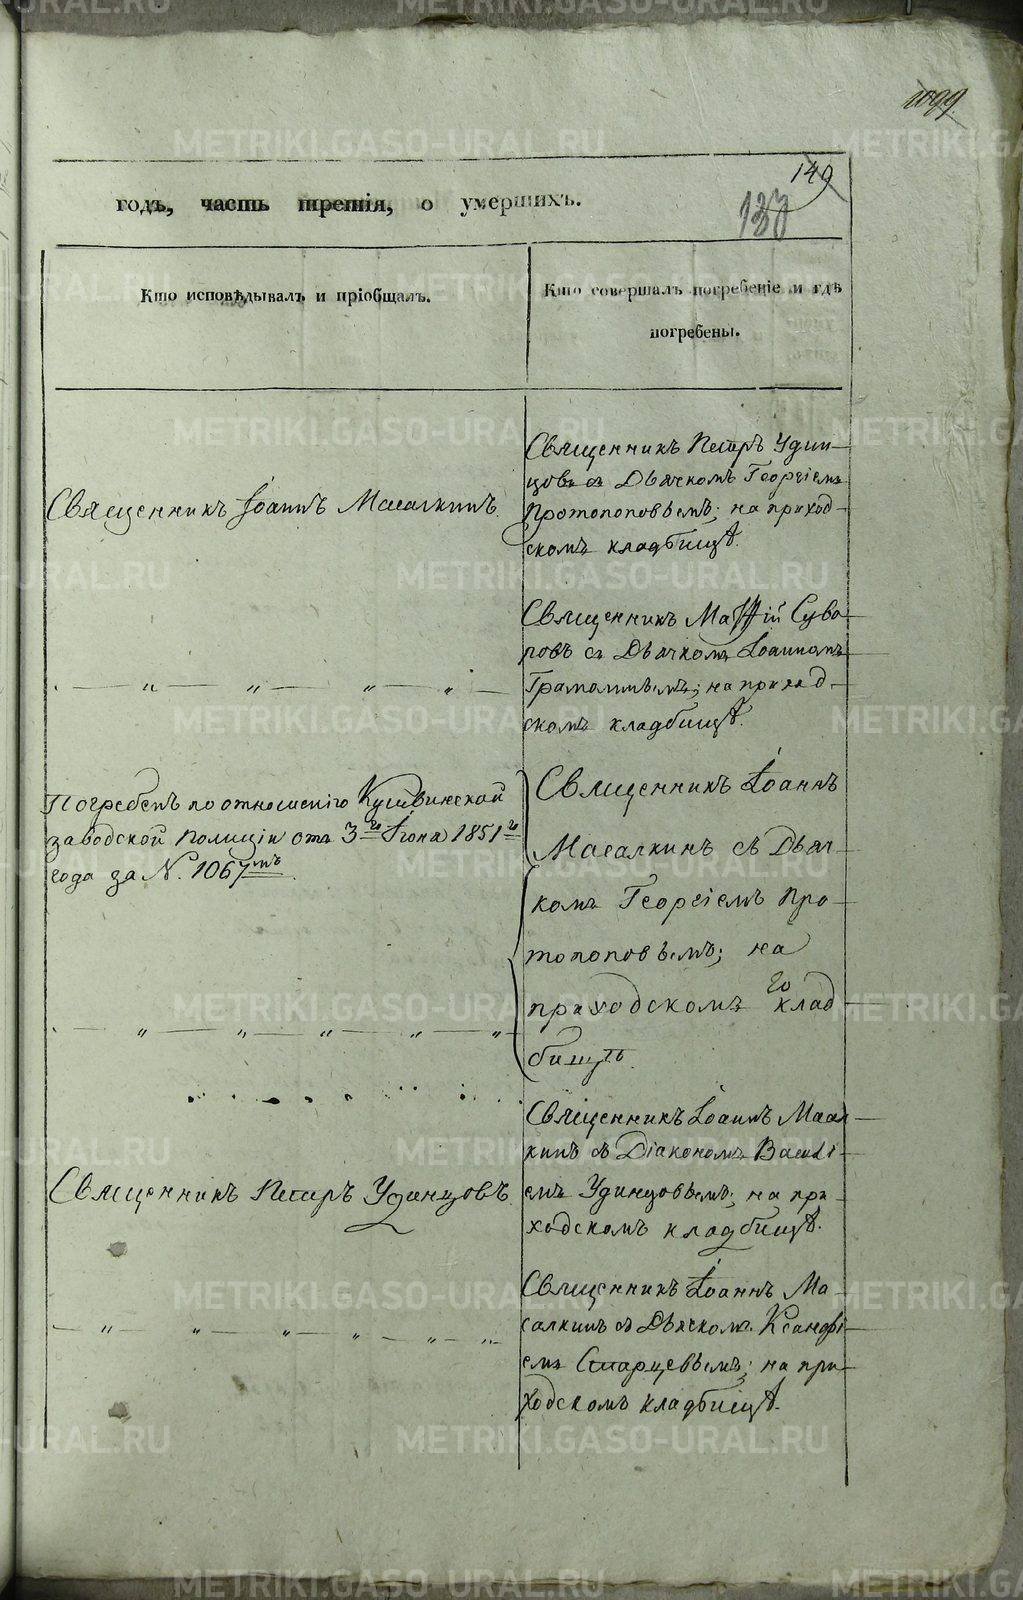 1099
149
137
годъ, часть третія, о умершихъ.
Кто исповѣдывалъ и пріобщалъ.
Кто совершалъ погребеніе и гдѣ
погребены.
Священникъ Петръ Удин-
цовъ съ Дьячкомъ Георгіемъ
Священникъ Іоаннъ Масалкинъ.
Протопоповымъ; на приход-
скомъ кладбищѣ.
Священникъ Матѳій Суво
ровъ съ Дьячкомъ Іоанномъ
Грамолинымъ; на приход-
скомъ кладбищѣ.
Погребенъ по отношенію Кушвинской
заводской Полиціи отъ 3го Іюня 1851го
года за N. 1067мъ.
Священникъ Іоаннъ
Масалкинъ съ Дьяч-
комъ Георгіемъ Про-
топоповымъ; на
приходскомъ клад
бищѣ.
Священникъ Іоаннъ Масал
кинъ съ Діакономъ Василі-
Священникъ Петръ Удинцовъ.
емъ Удинцовымъ; на при-
ходскомъ кладбищѣ.
Священникъ Іоаннъ Ма-
салкинъ съ Дьячкомъ Ксанфі-
емъ Старцевымъ; на при-
ходскомъ кладбищѣ.
METRIKI.GASO-URAL.RU